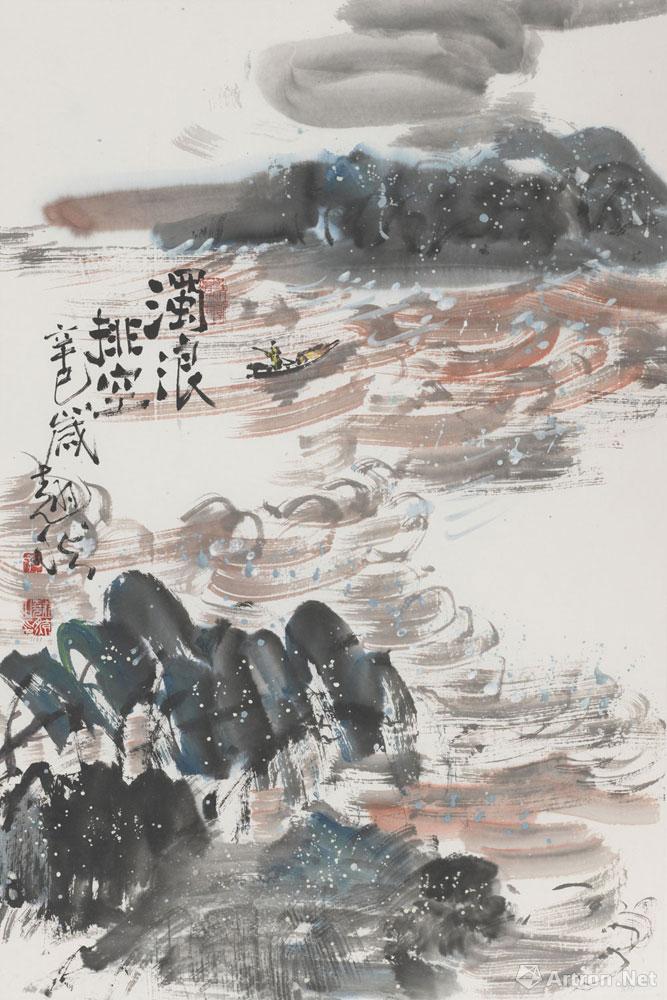 Artron.Net
濁浪
排空
辛巳歲
Artron.Net